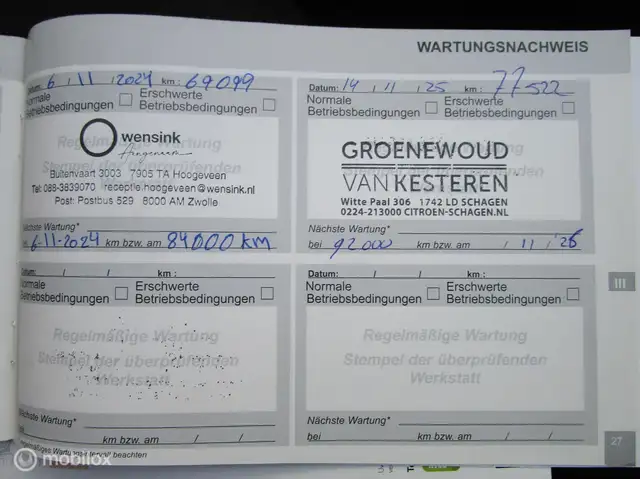 WARTUNGSNACHWEIS
Datum: 6 / 11 / 2024 km: 69099
Normale Betriebsbedingungen
Erschwerte Betriebsbedingungen
Regelmäßige Wartung
wensink
Hoogeveen
Buitenvaart 3003 7905 TA Hoogeveen
Tel: 088-3839070 receptie.hoogeveen@wensink.nl
Post: Postbus 529 8000 AM Zwolle
Nächste Wartung*
bei 6-11-2024 km bzw. am 84000 km
Datum: 14 / 11 / 25 km: 77522
Normale Betriebsbedingungen
Erschwerte Betriebsbedingungen
GROENEWOUD
VAN KESTEREN
Witte Paal 306 1742 LD SCHAGEN
0224-213000 CITROEN-SCHAGEN.NL
Nächste Wartung*
bei 92000 km bzw. am / 11 / '26
Datum: / / km:
Normale Betriebsbedingungen
Erschwerte Betriebsbedingungen
Regelmäßige Wartung
Stempel der überprüfenden
Werkstatt
Nächste Wartung*
km bzw. am / /
Datum: / / km:
Normale Betriebsbedingungen
Erschwerte Betriebsbedingungen
Regelmäßige Wartung
Stempel der überprüfenden
Werkstatt
Nächste Wartung*
bei km bzw. am / /
beachten
III
27
mobilox